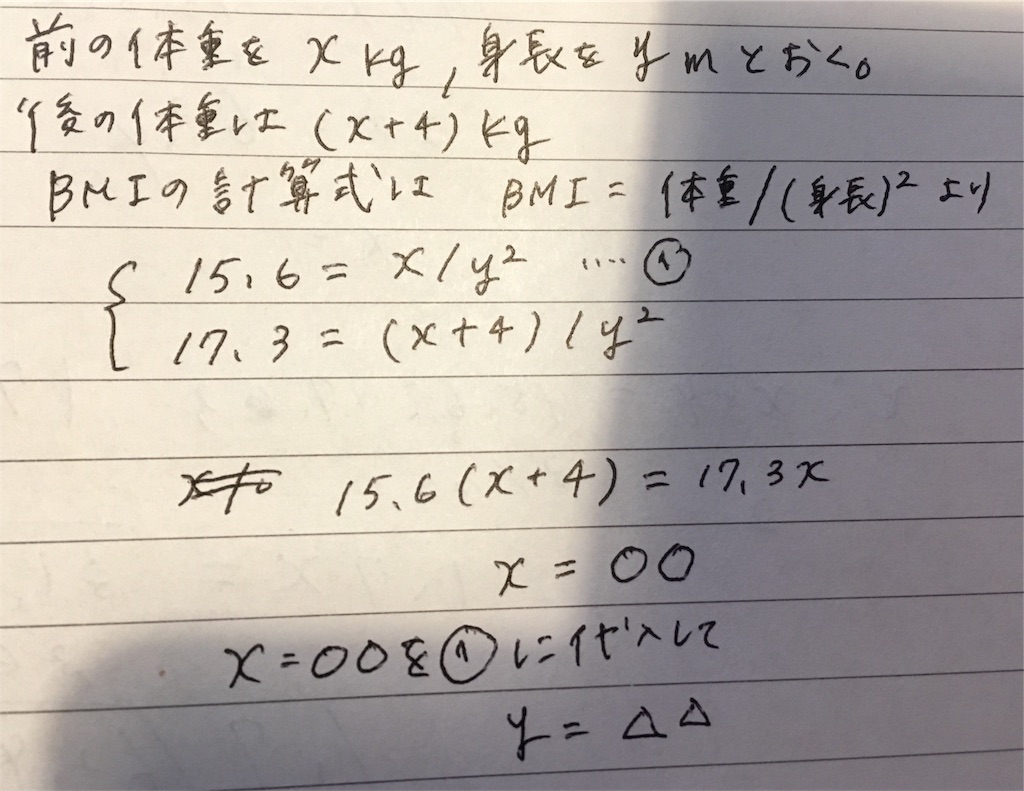 前の体重を x kg, 身長を y mとおく。
後の体重は (x+4) kg
BMIの計算式は BMI = 体重/(身長)² より
15.6 = x/y² ‥‥①
17.3 = (x+4)/y²
15.6(x+4) = 17.3x
x = ○○
x=○○を①に代入して
y = △△